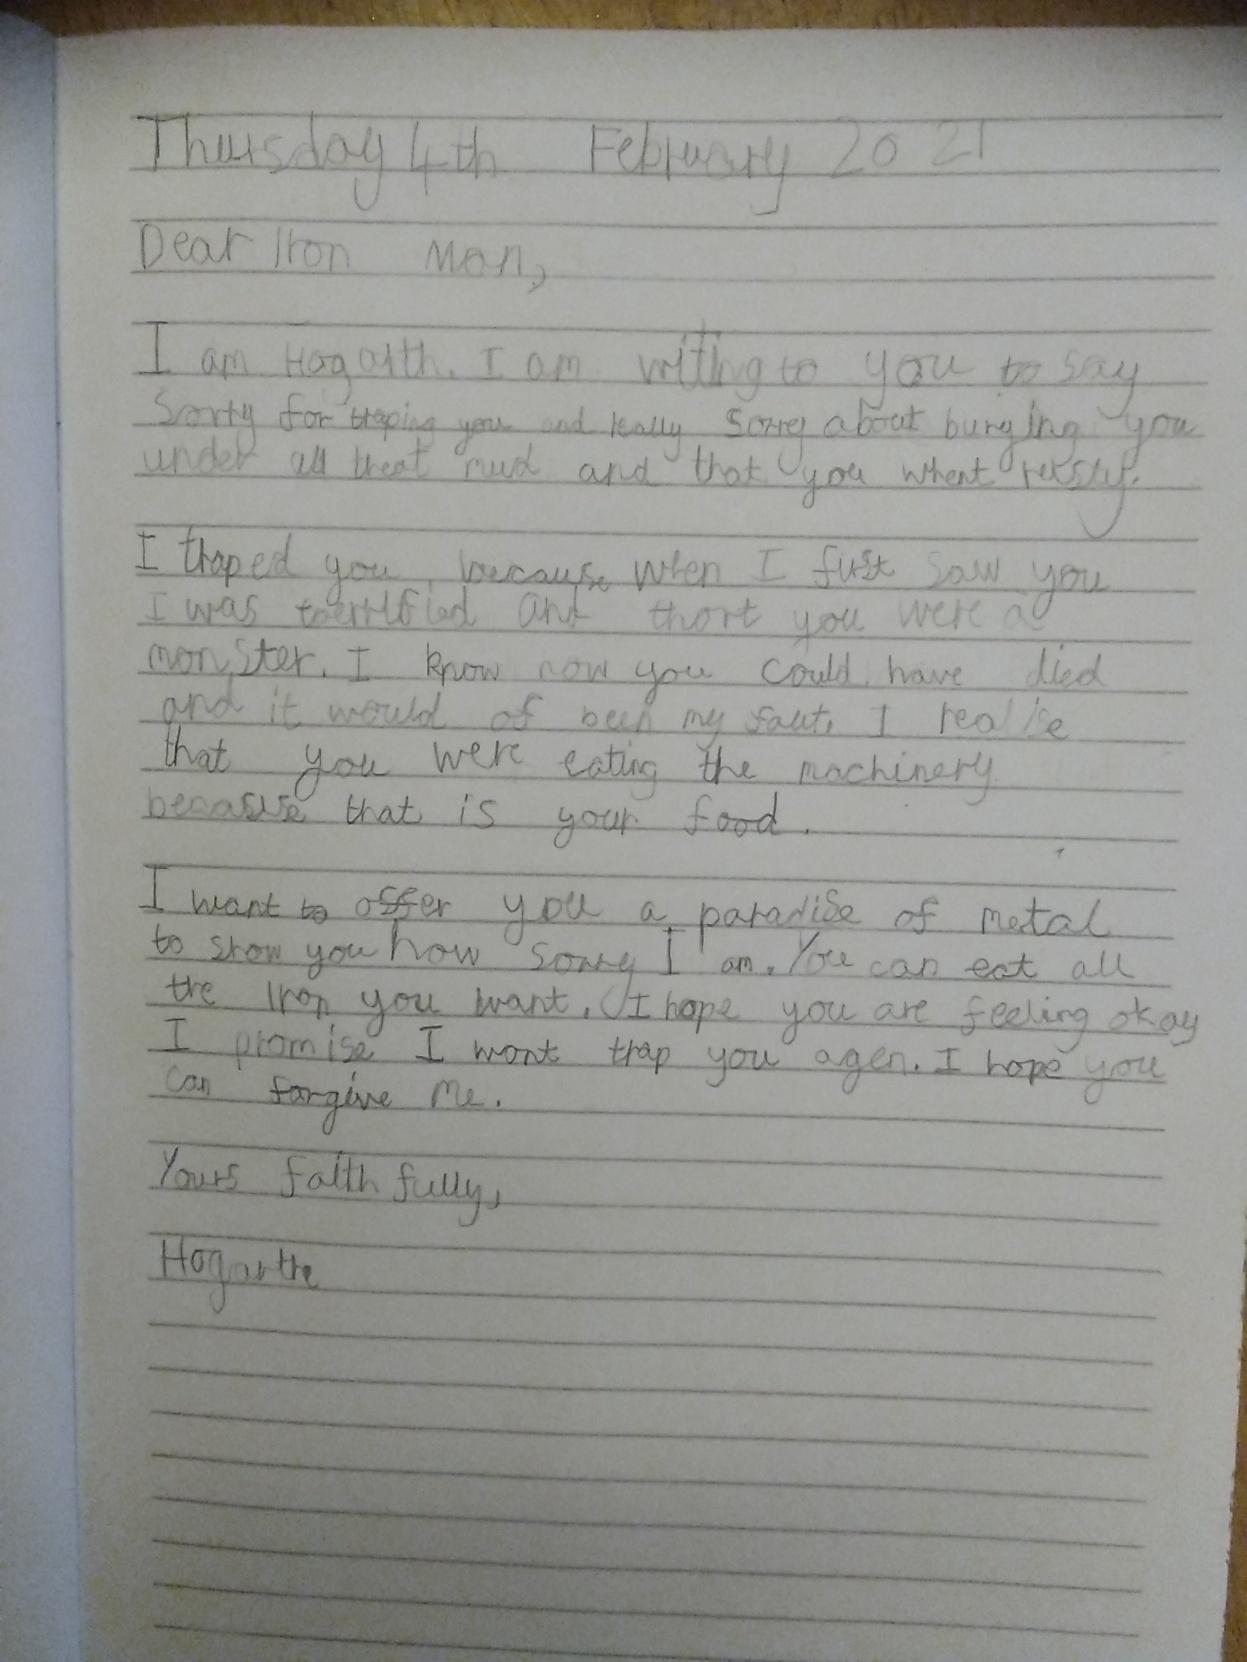 Thursday 4th February 2021
Dear Iron Man,
I am Hogarth. I am writing to you to say
sorry for traping you and really sorry about burying you
under all that mud and that you whent rusty.
I traped you, because when I first saw you
I was terrified and thort you were a
monster. I know now you could have died
and it would of been my faut. I realise
that you were eating the machinery
because that is your food.
I want to offer you a paradise of metal
to show you how sorry I am. You can eat all
the Iron you want. I hope you are feeling okay
I promise I wont trap you agen. I hope you
can forgive me.
Yours faithfully,
Hogarth